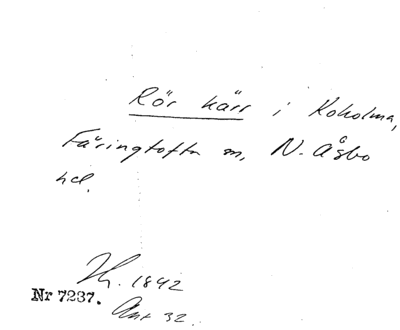 Rör kärr i Koholma,
Färingtofta sn, N. Åsbo
hd.
1842
Nr 7237.
Ant 32.